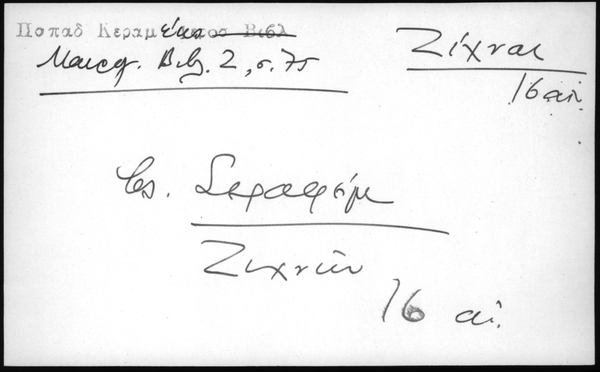 Ποπαδ Κεραμέως
Μαυρ. Βιβ. 2, σ. 75
Ζίχναι
16 αἰ.
Σεραφείμ
Ζιχνῶν
16 αἰ.